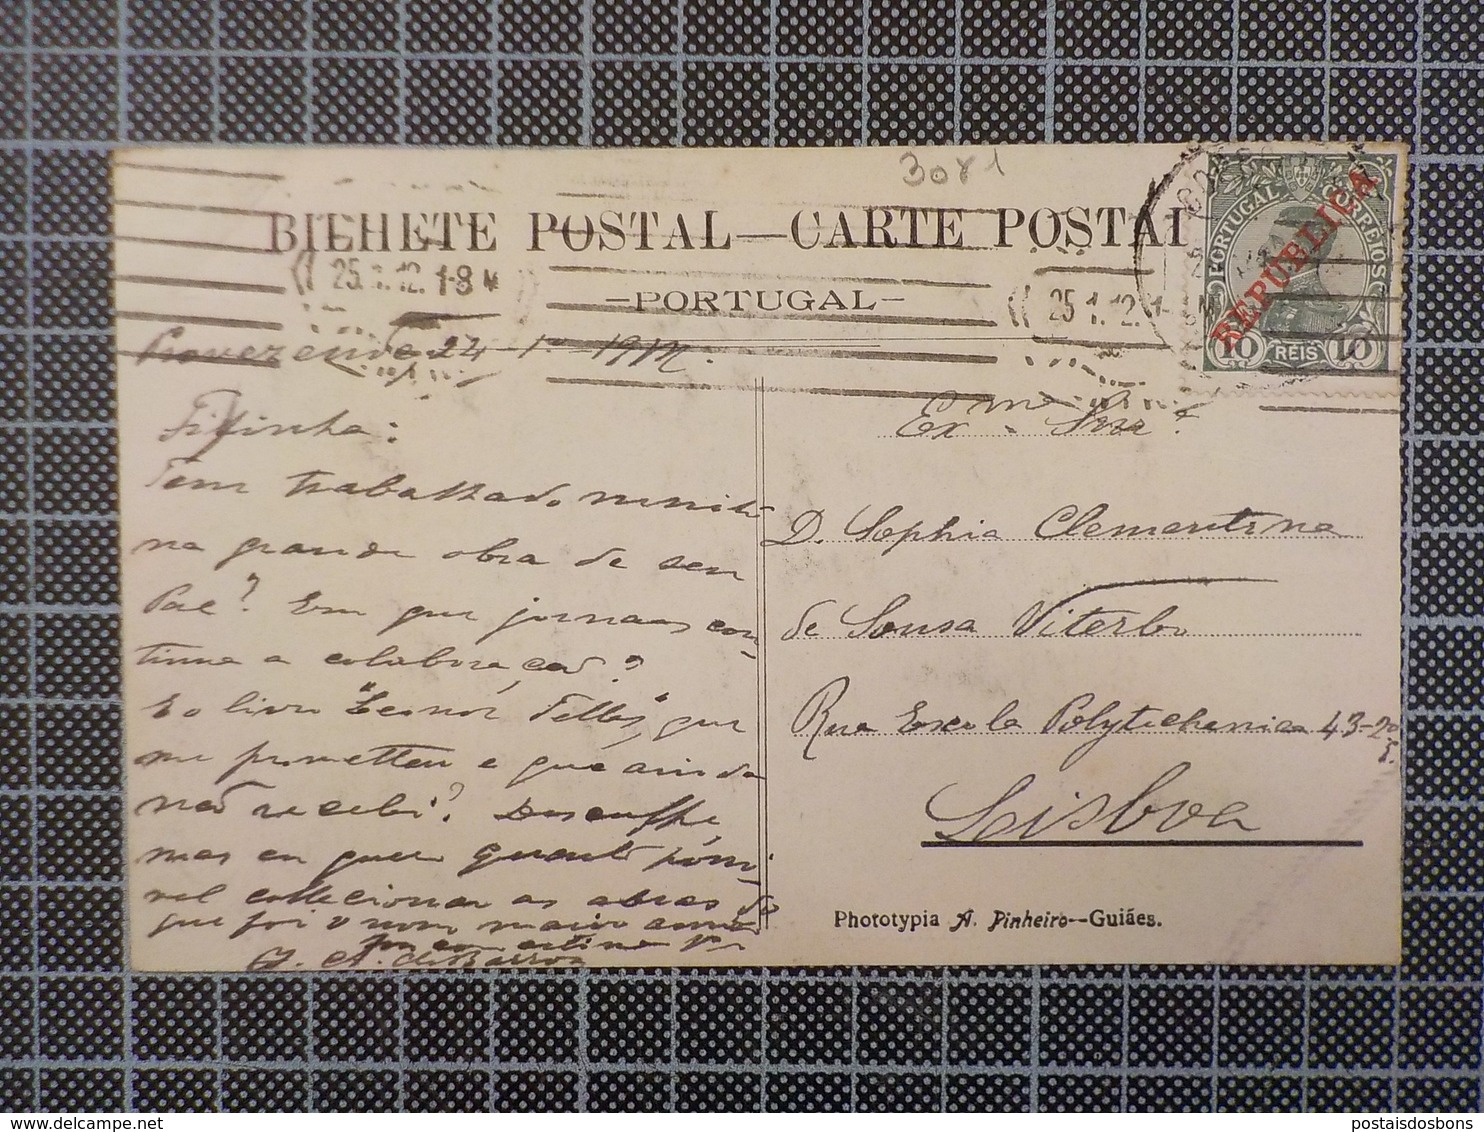 3081
BILHETE POSTAL—CARTE POSTALE
—PORTUGAL—
25.1.12.1-8 M
25.1.12.1-8 M
PORTUGAL CORREIOS
REPUBLICA
10 REIS 10
24-1º-1912.
Fifinha:
Tem trabalhado muito
na grande obra de seu
Pae? Em que jornaes con-
tinua a colaboração?
E o livro "Leonor Telles", que
me prometteu e que ainda
não recebi? Desculpe,
mas eu quero quanto possi-
vel colleccionar as obras do
que foi o meu maior
J. A. de Barros
Ex.ma Snra.
D. Sophia Clementina
de Sousa Viterbo
Rua Escola Polytechenica 43-2º
Lisboa
Phototypia A. Pinheiro--Guiães.
postaisdosbons